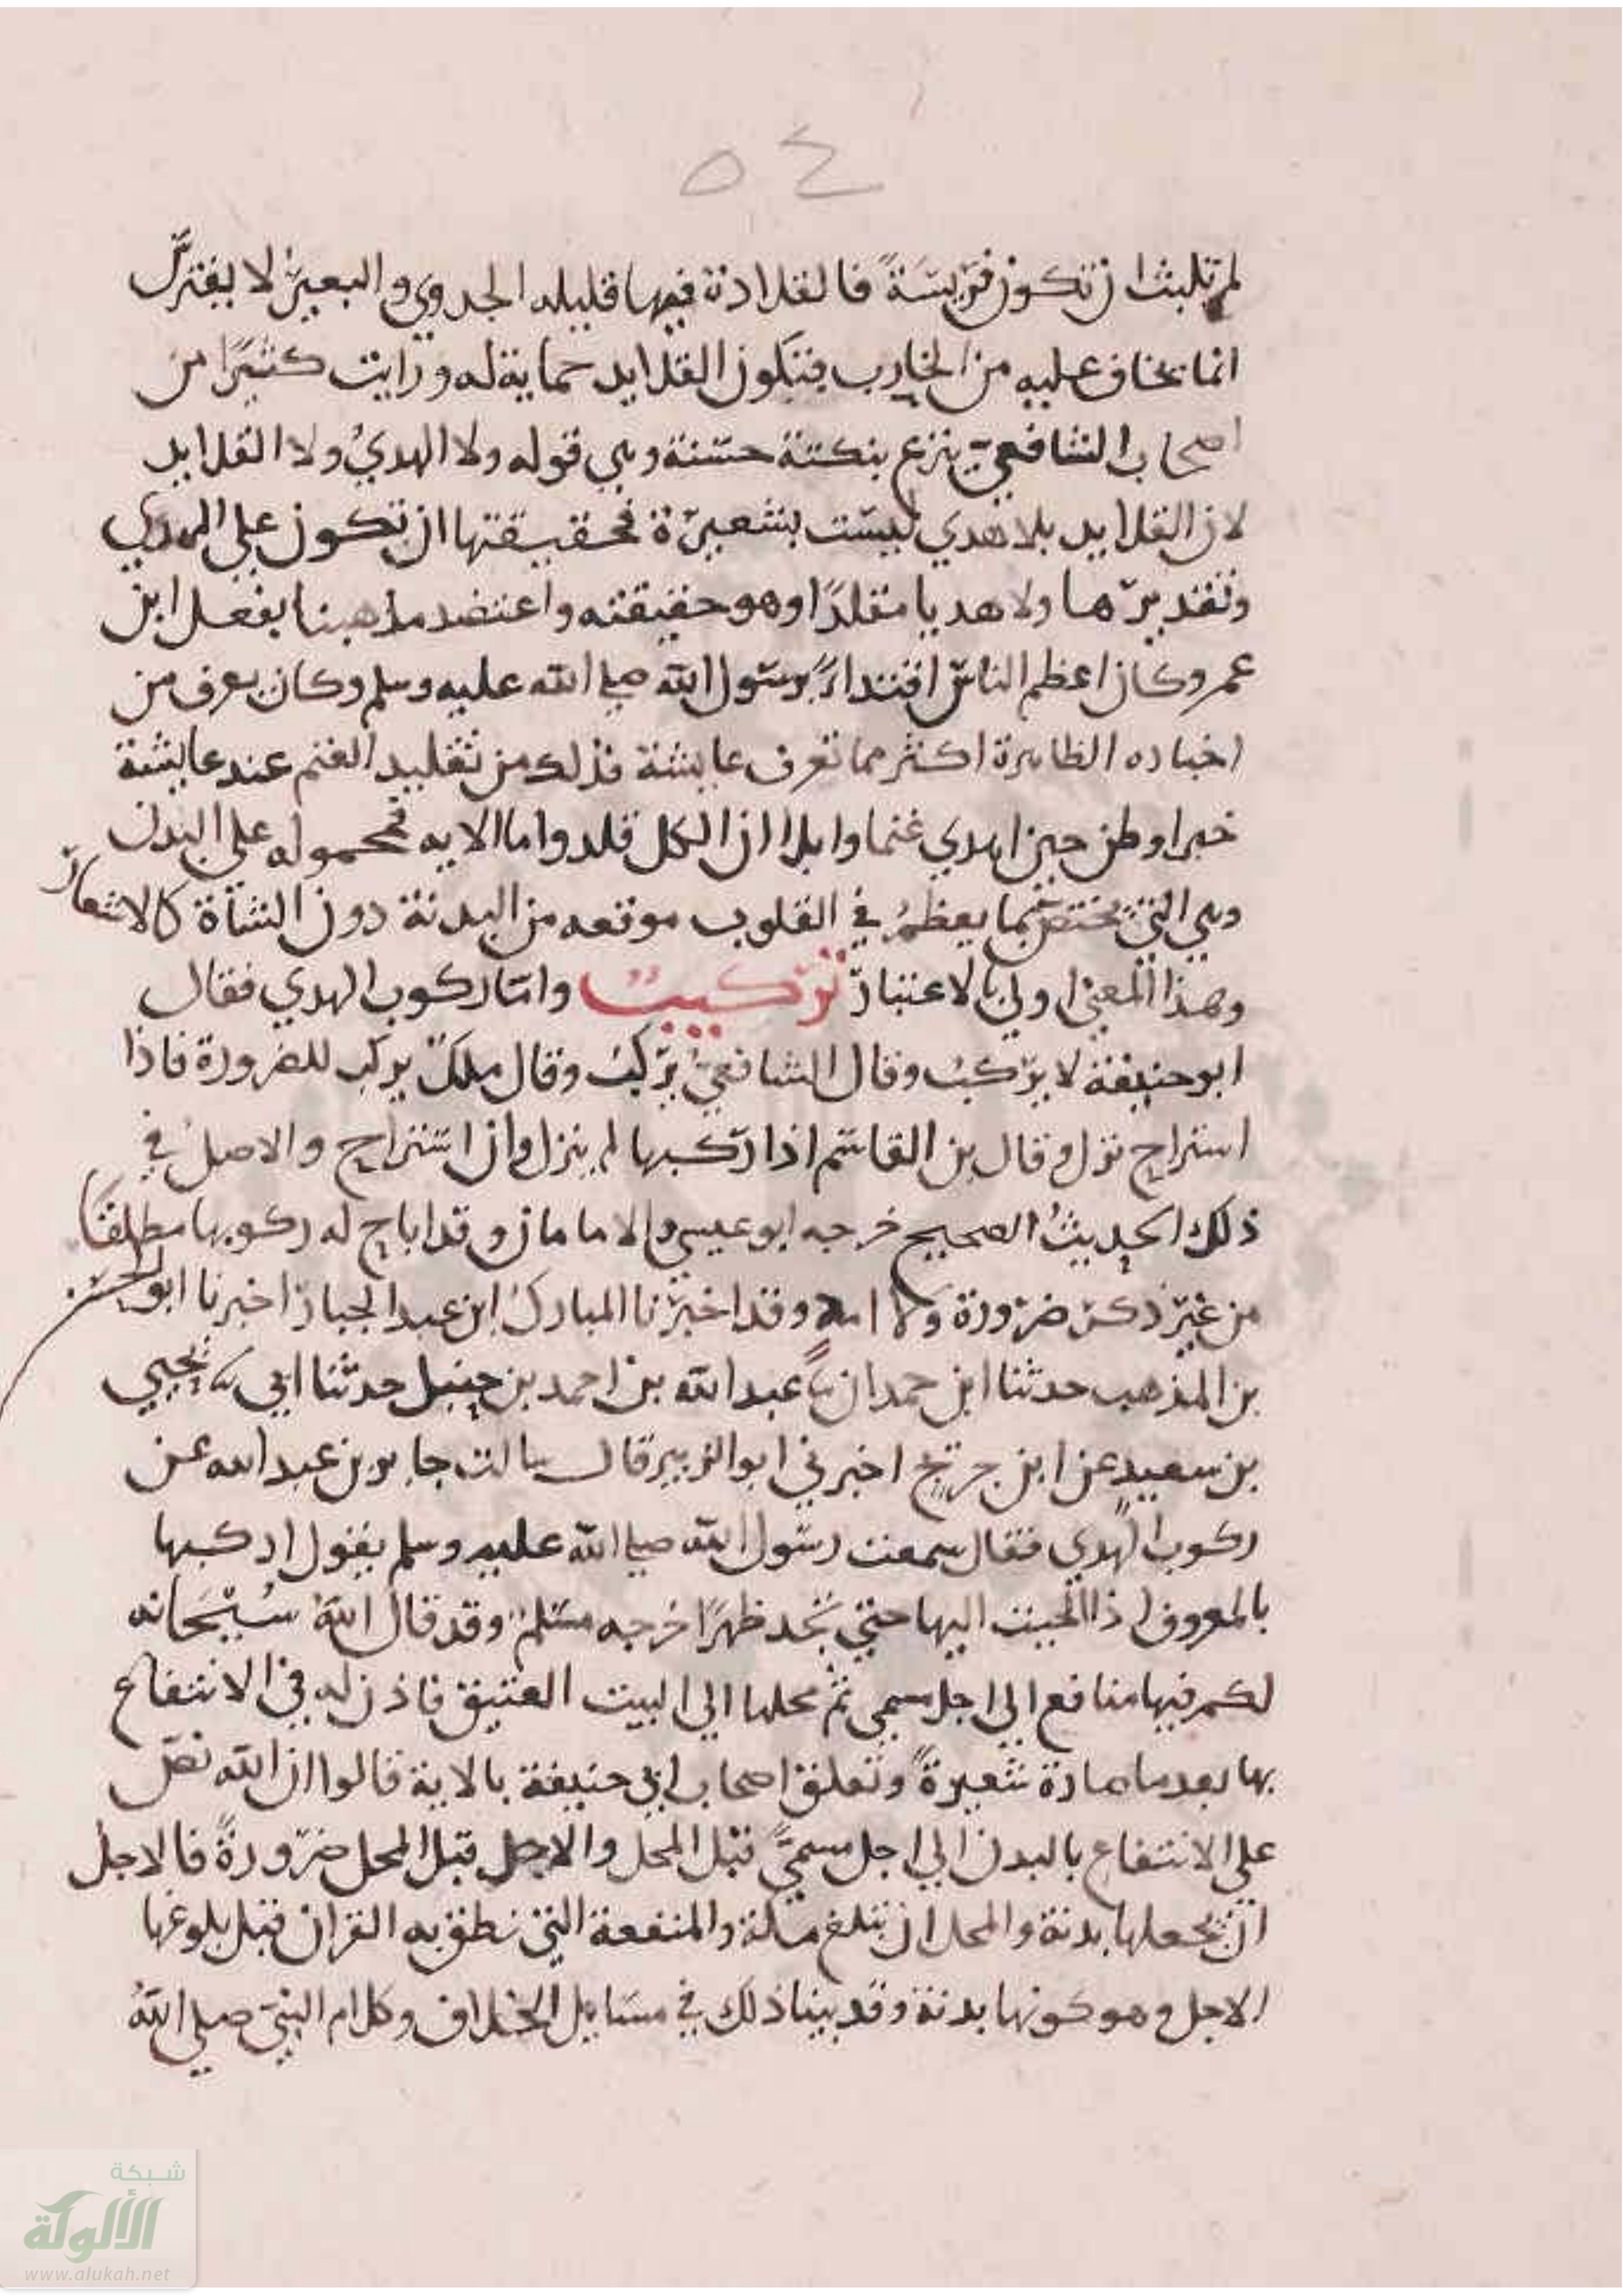 ٥٤
لم تلبث ان تكون فريسَةً فالقلادة فيها قليله الجدوي والبعير لا يفترس
انما يخاف عليه من الخارب فتكون القلايد حماية له ورايت كثيرًا من
اصحاب الشافعي ينزع بنكتة حسنة وهي قوله ولا الهدي ولا القلايد
لان القلايد بلا هدي ليست بشعيرة فحقيقتها ان تكون علي الهدي
وتقديرها ولا هديا مقلدًا وهو حقيقته واعتضد مذهبنا بفعل ابن
عمر وكان اعظم الناس اقتداءً برسول الله صلي الله عليه وسلم وكان يعرف من
اخباره الظاهرة اكثر مما تعرف عايشة فذلك من تقليد الغنم عند عايشة
خبر او ظن حين اهدي غنما وابلا ان الكل قلد واما الايه فمحموله علي البدن
وهي التي تختص بما يعظم في القلوب موقعه من البدنة دون الشاة كالاشعار
وهذا المعني اولي بالاعتبار تركيب واما ركوب الهدي فقال
ابو حنيفة لا يركب وقال الشافعي يركب وقال ملك يركب للضرورة فاذا
استراح نزل وقال بن القاسم اذا ركبها لم ينزل وان استراح والاصل في
ذلك الحديث الصحيح خرجه ابو عيسي والامامان وقد اباح له ركوبها مطلقًا
من غير ذكر ضرورة وقد اخبرنا المبارك ابن عبد الجبار اخبرنا ابو الحسن
بن المذهب حدثنا ابن حمدان ثنا عبد الله بن احمد بن حنبل حدثنا ابي ثنا يحيي
بن سعيد عن ابن جريج اخبرني ابو الزبير قال سالت جابر بن عبد الله عن
ركوب الهدي فقال سمعت رسول الله صلي الله عليه وسلم يقول اركبها
بالمعروف اذا الجيت اليها حتي تجد ظهرًا خرجه مسلم وقد قال الله سُبْحَانه
لكم فيها منافع الي اجل مسمي ثم محلها الي البيت العتيق فاذن له في الانتفاع
بها بعد ما صارة شعيرةً وتعلق اصحاب ابي حنيفة بالاية قالوا ان الله نص
علي الانتفاع بالبدن الي اجل مسميً قبل المحل والاجل قبل المحل ضرورةً فالاجل
ان يجعلها بدنة والمحل ان تبلغ مكة والمنفعة التي نطق به القران قبل بلوغها
الاجل وهو كونها بدنة وقد بينا ذلك في مسايل الخلاف وكلام النبي صلي الله
شبكة
الألوكة
www.alukah.net